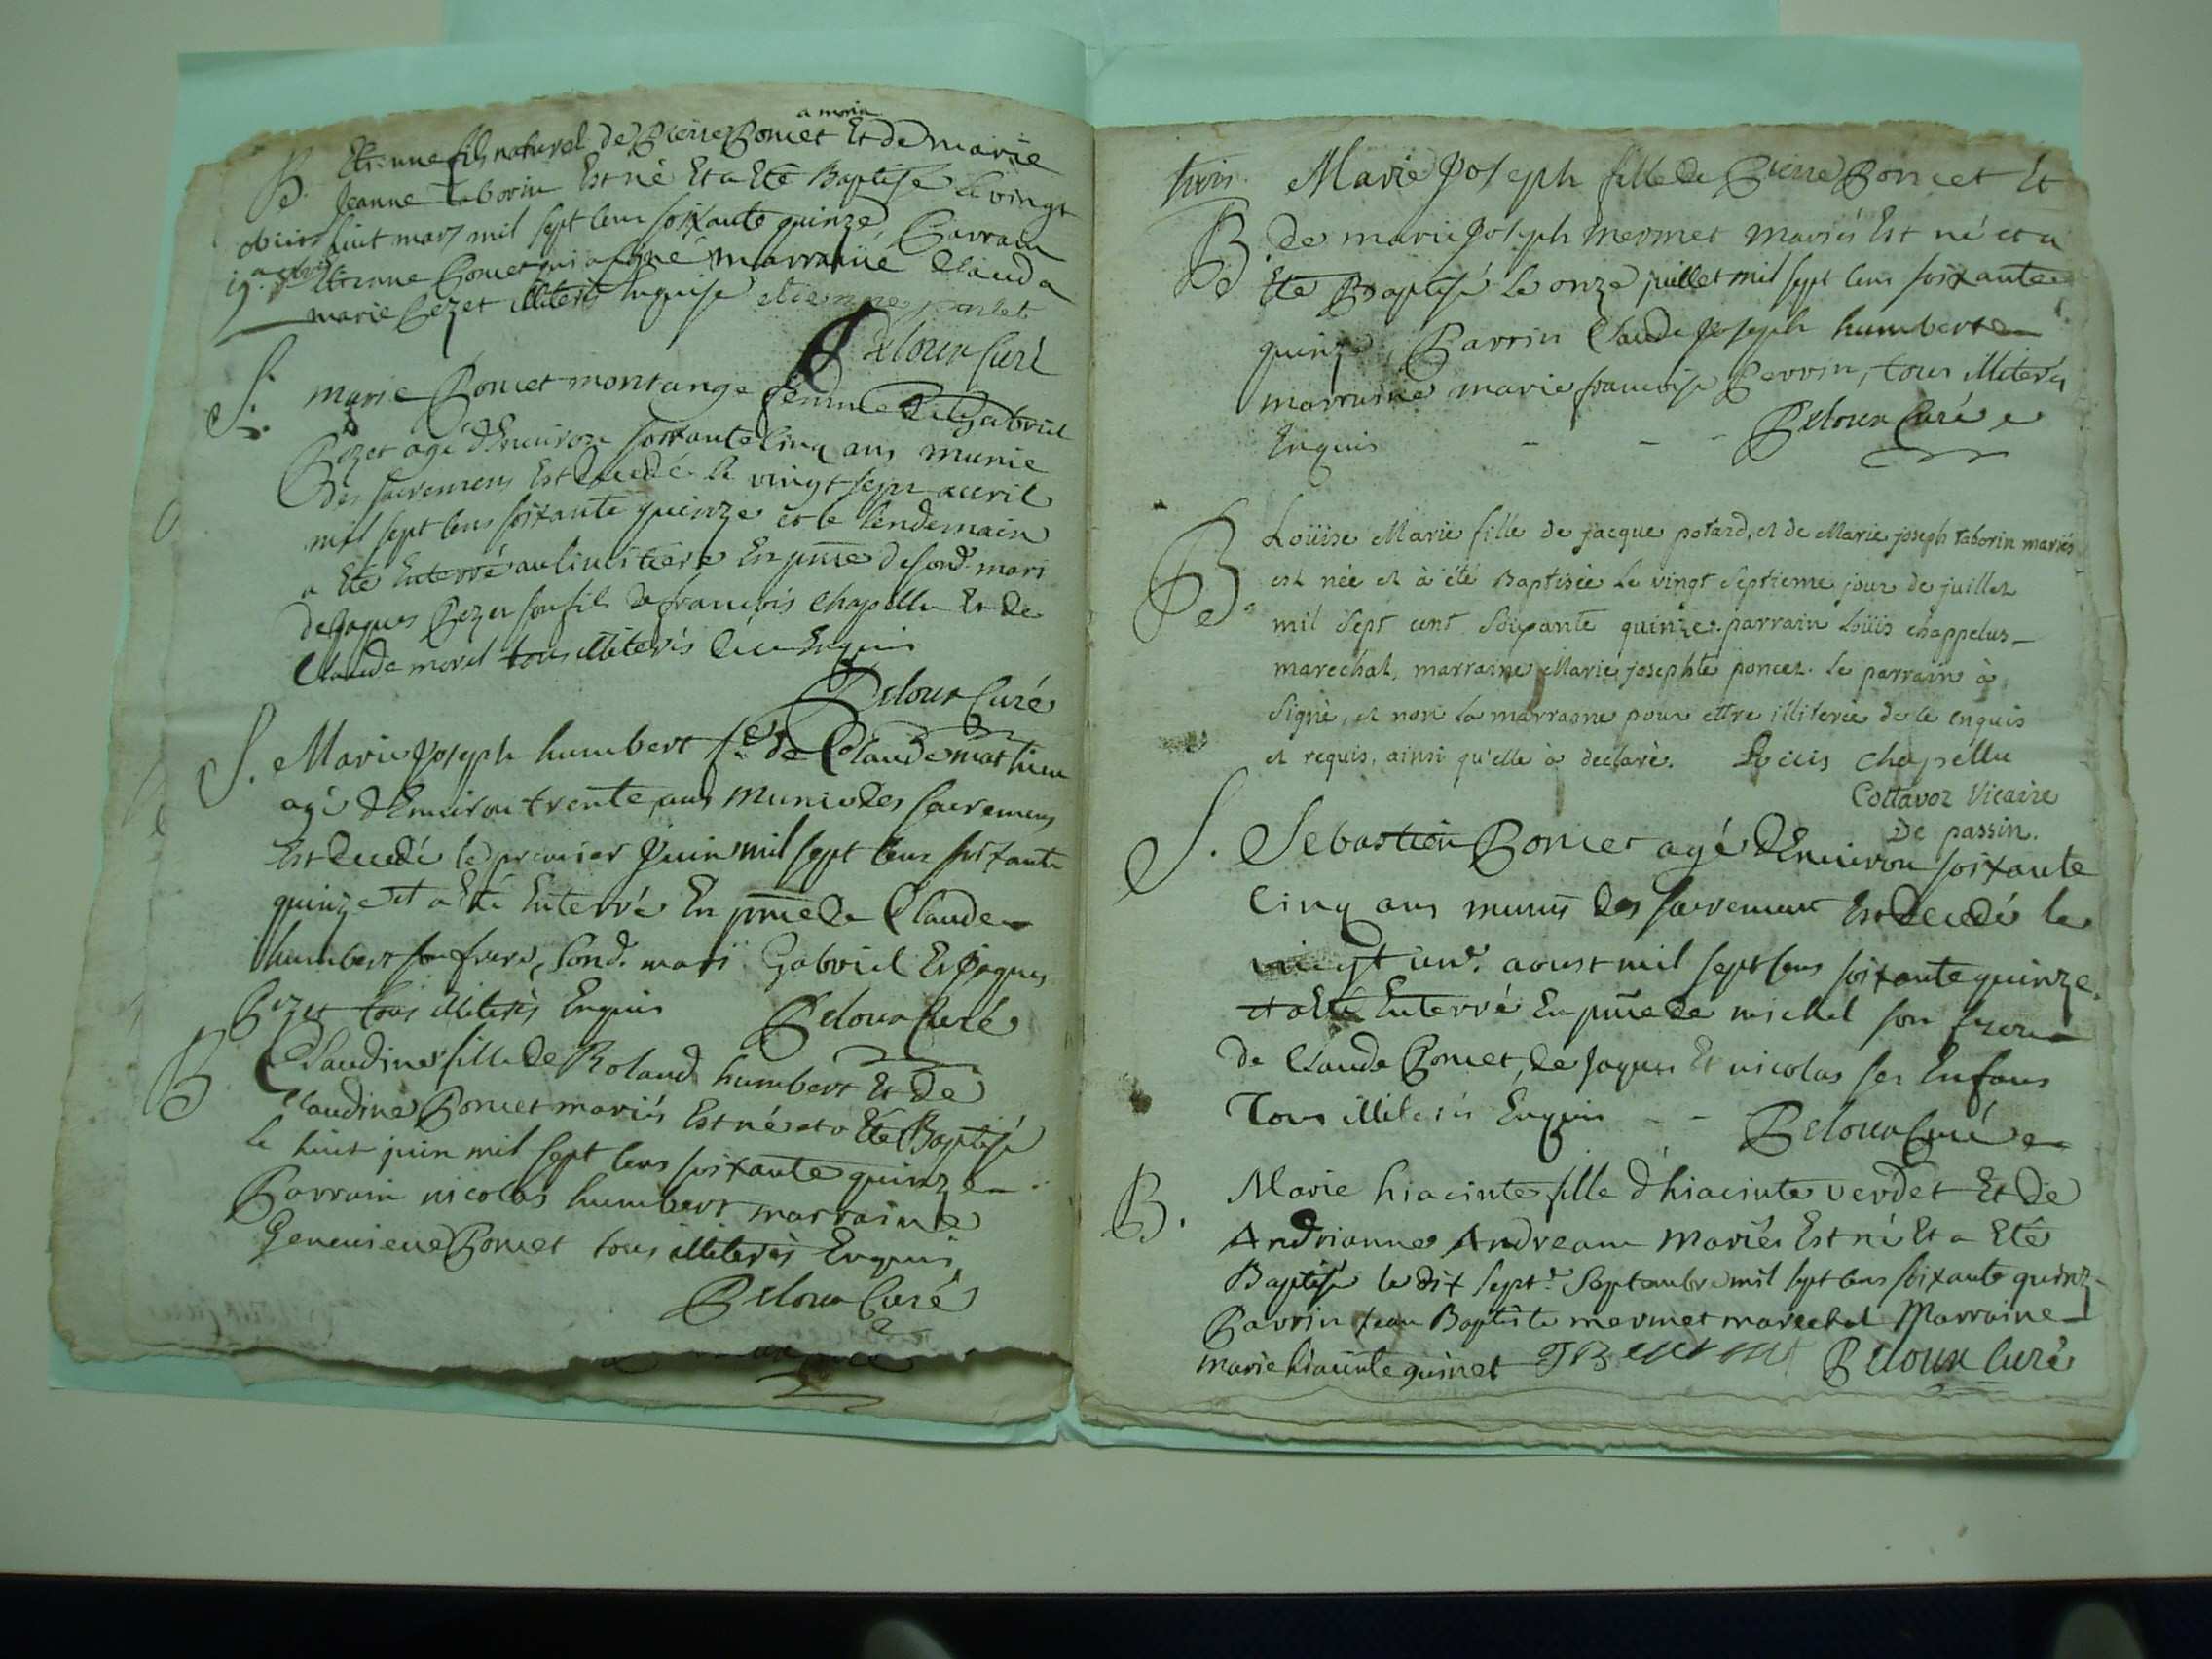 a morin
B. Etienne fils naturel de Pierre Poncet Et de Marie
Jeanne taborin Est né Et a Eté Baptisé le vingt
obiit huit mars mil sept cens soixante quinze, Parrain
Etienne Poncet qui a signé marraine Clauda
marie Pezet illiterée Enquise etienne poncet
Deloux Curé
S. marie Poncet montange femme de Gabriel
Pezet agé d'Environ soixante cinq ans munie
des sacremens Est decedé le vingt sept avril
mil sept cens soixante quinze et le lendemain
a Eté Enterré au cimitiere En pnce de sond. mari
de Jaques Pezet son fils de francois chapellu Et de
Claude morel tous illiterés Enquis
Deloux Curé
S. Marie Joseph humbert fe. de Claude mathieu
agé d'Environ trente ans munie des sacremens
Est decedé le premier Juin mil sept cens soixante
quinze et a Eté Enterré En pnce de Claude
humbert son frere, sond. mari Gabriel Et Jaques
Pezet tous illiterés Enquis Deloux Curé
B Claudine fille de Roland humbert Et de
Claudine Poncet mariés Est né et a Eté Baptisé
le huit juin mil sept cens soixante quinze
Parrain nicolas humbert marraine
Genevieve Poncet tous illiterés Enquis
Deloux Curé
trois. Marie Joseph fille de Pierre Poncet Et
B. de marie Joseph mermet mariés Est né et a
Eté Baptisé le onze juillet mil sept cens soixante
quinze, Parrin Claude Joseph humbert
marraine marie francoise Perrin, tous illiterés
Enquis - - - Deloux Curé
B. Loüise Marie fille de jacque potard, et de Marie joseph taborin mariés
est née et à été Baptisée Le vingt Septieme jour de juillet
mil Sept cent Soixante quinze. parrain Loüis chappelus
marechal, marraine Marie josephte poncet. Le parrain à
Signé, et non la marraine pour ettre illiterée de le enquis
et requis, ainsi qu'elle à declaré. Loüis chapellu
Cottavoz Vicaire
De passin.
S. Sebastien Poncet agé d'Environ soixante
Cinq ans munis des sacremens Est decedé le
vingt un. aoust mil sept cens soixante quinze.
et a Eté Enterré En pnce de michel son frere
de Claude Poncet, de Jaques Et nicolas ses Enfans
Tous illiterés Enquis - - Deloux Curé
B. Marie hiacinte fille d'hiacinte verdet Et de
Andrianne Andreanu Mariés Est né Et a Eté
Baptisé le dix sept. Septembre mil sept cens soixante quinz
Parrin Jean Baptiste mermet marechal Marraine
marie hiacinte guinet Deloux Curé